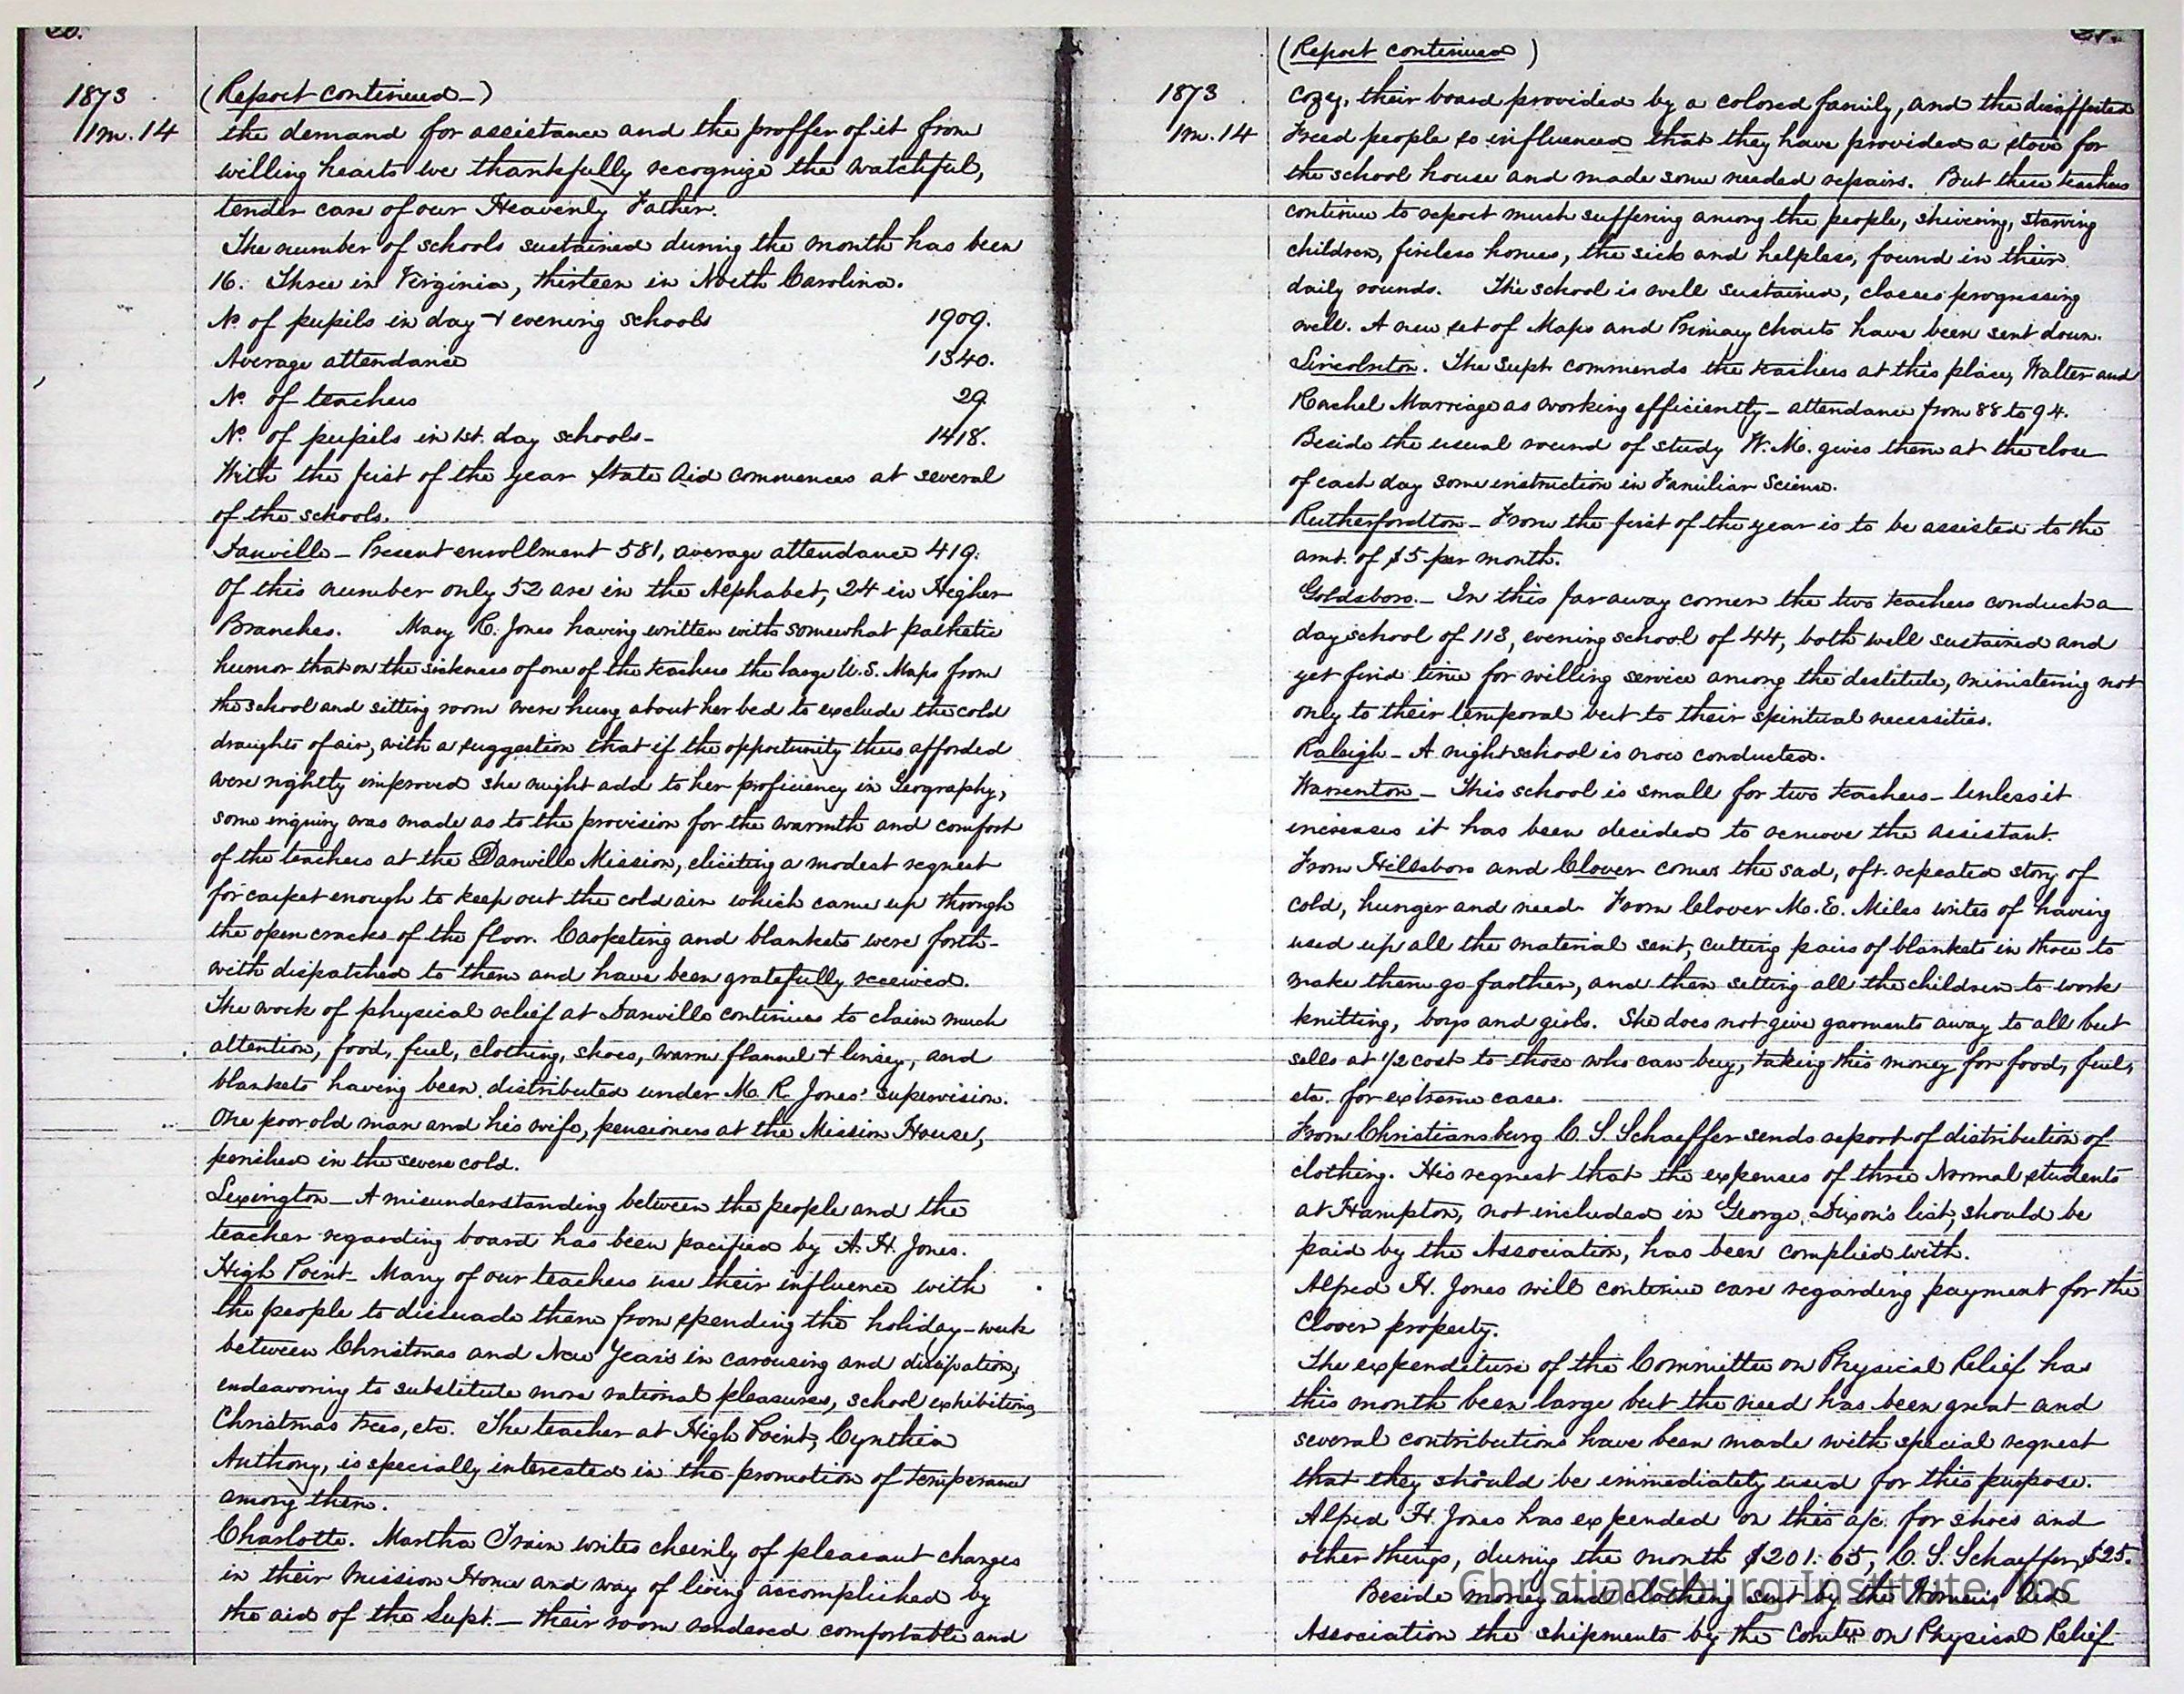 1873
1m. 14
(Report continued-)
the demand for assistance and the proffer of it from
willing hearts we thankfully recognize the watchful,
tender care of our Heavenly Father.
The number of schools sustained during the month has been
16. Three in Virginia, thirteen in North Carolina.
No. of pupils in day + evening schools 1909.
Average attendance 1340.
No. of teachers 29
No. of pupils in 1st. day schools- 1418.
With the first of the year State Aid commences at several
of the schools.
Danville - Present enrollment 581, average attendance 419.
Of this number only 52 are in the Alphabet, 24 in Higher
Branches. Mary R. Jones having written with somewhat pathetic
humor that on the sickness of one of the teachers the large U.S. Maps from
the school and sitting room were hung about her bed to exclude the cold
draughts of air, with a suggestion that if the opportunity thus afforded
were rightly improved she might add to her proficiency in Geography,
some enquiry was made as to the provision for the warmth and comfort
of the teachers at the Danville Mission, eliciting a modest request
for carpet enough to keep out the cold air which came up through
the open cracks of the floor. Carpeting and blankets were forth-
with dispatched to them and have been gratefully received.
The work of physical relief at Danville continues to claim much
attention, food, fuel, clothing, shoes, warm flannel + linsey, and
blankets having been distributed under M. R. Jones' supervision.
One poor old man and his wife, pensioners at the Mission House,
perished in the severe cold.
Lexington - A misunderstanding between the people and the
teacher regarding board has been pacified by A. H. Jones.
High Point - Many of our teachers use their influence with
the people to dissuade them from spending the holiday-week
between Christmas and New Year's in carousing and dissipation,
endeavoring to substitute more rational pleasures, school exhibitions,
Christmas trees, etc. The teacher at High Point, Cynthia
Anthony, is specially interested in the promotion of temperance
among them.
Charlotte. Martha Train writes cheerily of pleasant changes
in their Mission Home and way of living accomplished by
the aid of the Supt. - their room rendered comfortable and
(Report continued)
1873
1m. 14
cozy, their board provided by a colored family, and the disaffected
Freed people so influenced that they have provided a stove for
the school house and made some needed repairs. But these teachers
continue to report much suffering among the people, shivering, starving
children, fireless homes, the sick and helpless, found in their
daily rounds. The school is well sustained, classes progressing
well. A new set of Maps and Primary Charts have been sent down.
Lincolnton. The Supt. commends the teachers at this place, Walter and
Rachel Marriage as working efficiently - attendance from 88 to 94.
Beside the usual round of study W. M. gives them at the close
of each day some instruction in Familiar Science.
Rutherfordton - From the first of the year is to be assisted to the
amt. of $5 per month.
Goldsboro. - In this far away corner the two teachers conduct a
day school of 113, evening school of 44, both well sustained and
yet find time for willing service among the destitute, ministering not
only to their temporal but to their spiritual necessities.
Raleigh - A night school is now conducted.
Warrenton - This school is small for two teachers - Unless it
increases it has been decided to remove the assistant.
From Hillsboro and Clover comes the sad, oft-repeated story of
cold, hunger and need. From Clover M. E. Miles writes of having
used up all the material sent, cutting pairs of blankets in three to
make them go farther, and then setting all the children to work
knitting, boys and girls. She does not give garments away to all but
sells at 1/2 cost to those who can buy, taking this money for food, fuel,
etc. for extreme cases.
From Christiansburg C. S. Schaeffer sends report of distribution of
clothing. His request that the expenses of three Normal students
at Hampton, not included in George Dixon's list, should be
paid by the Association, has been complied with.
Alfred H. Jones will continue care regarding payment for the
Clover property.
The expenditure of the Committee on Physical Relief has
this month been large but the need has been great and
several contributions have been made with special request
that they should be immediately used for this purpose.
Alfred H. Jones has expended on this a/c. for shoes and
other things, during the month $201.65, C. S. Schaeffer, $25.
Beside money and clothing sent by the Women's Aid
Association the shipments by the Comtee on Physical Relief
Christiansburg Institute, Inc